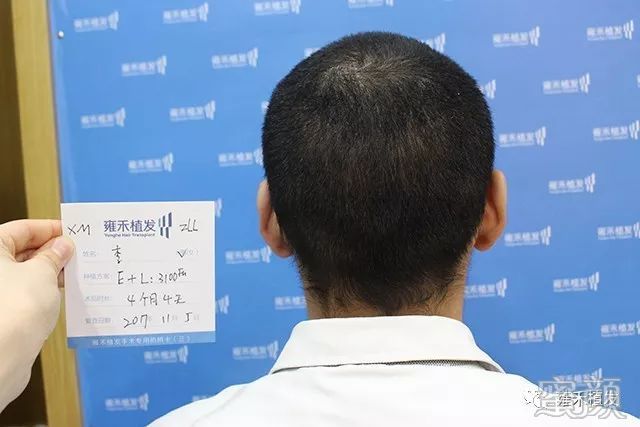 XM 雍禾植发 ZLL
Yonghe Hair Transplant
姓名: 李
种植方案: E+L:3100
术后时长: 4个月4天
复查日期: 2017年11月5日
雍禾植发手术专用拍照卡(三)
雍禾植发
雍禾植发
蜜颜